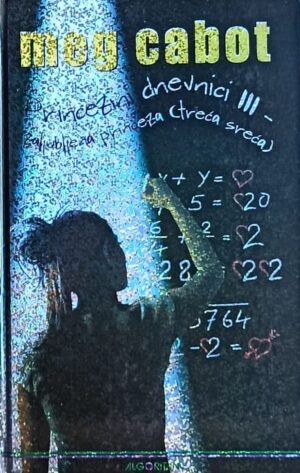 meg cabot
Princezini dnevnici III -
zaljubljena princeza (treća sreća)
x + y = ♡
5 = ♡20
6/4 + 2 = ♡2
28 : = ♡2♡2
764
- ♡2 =
ALGORITAM